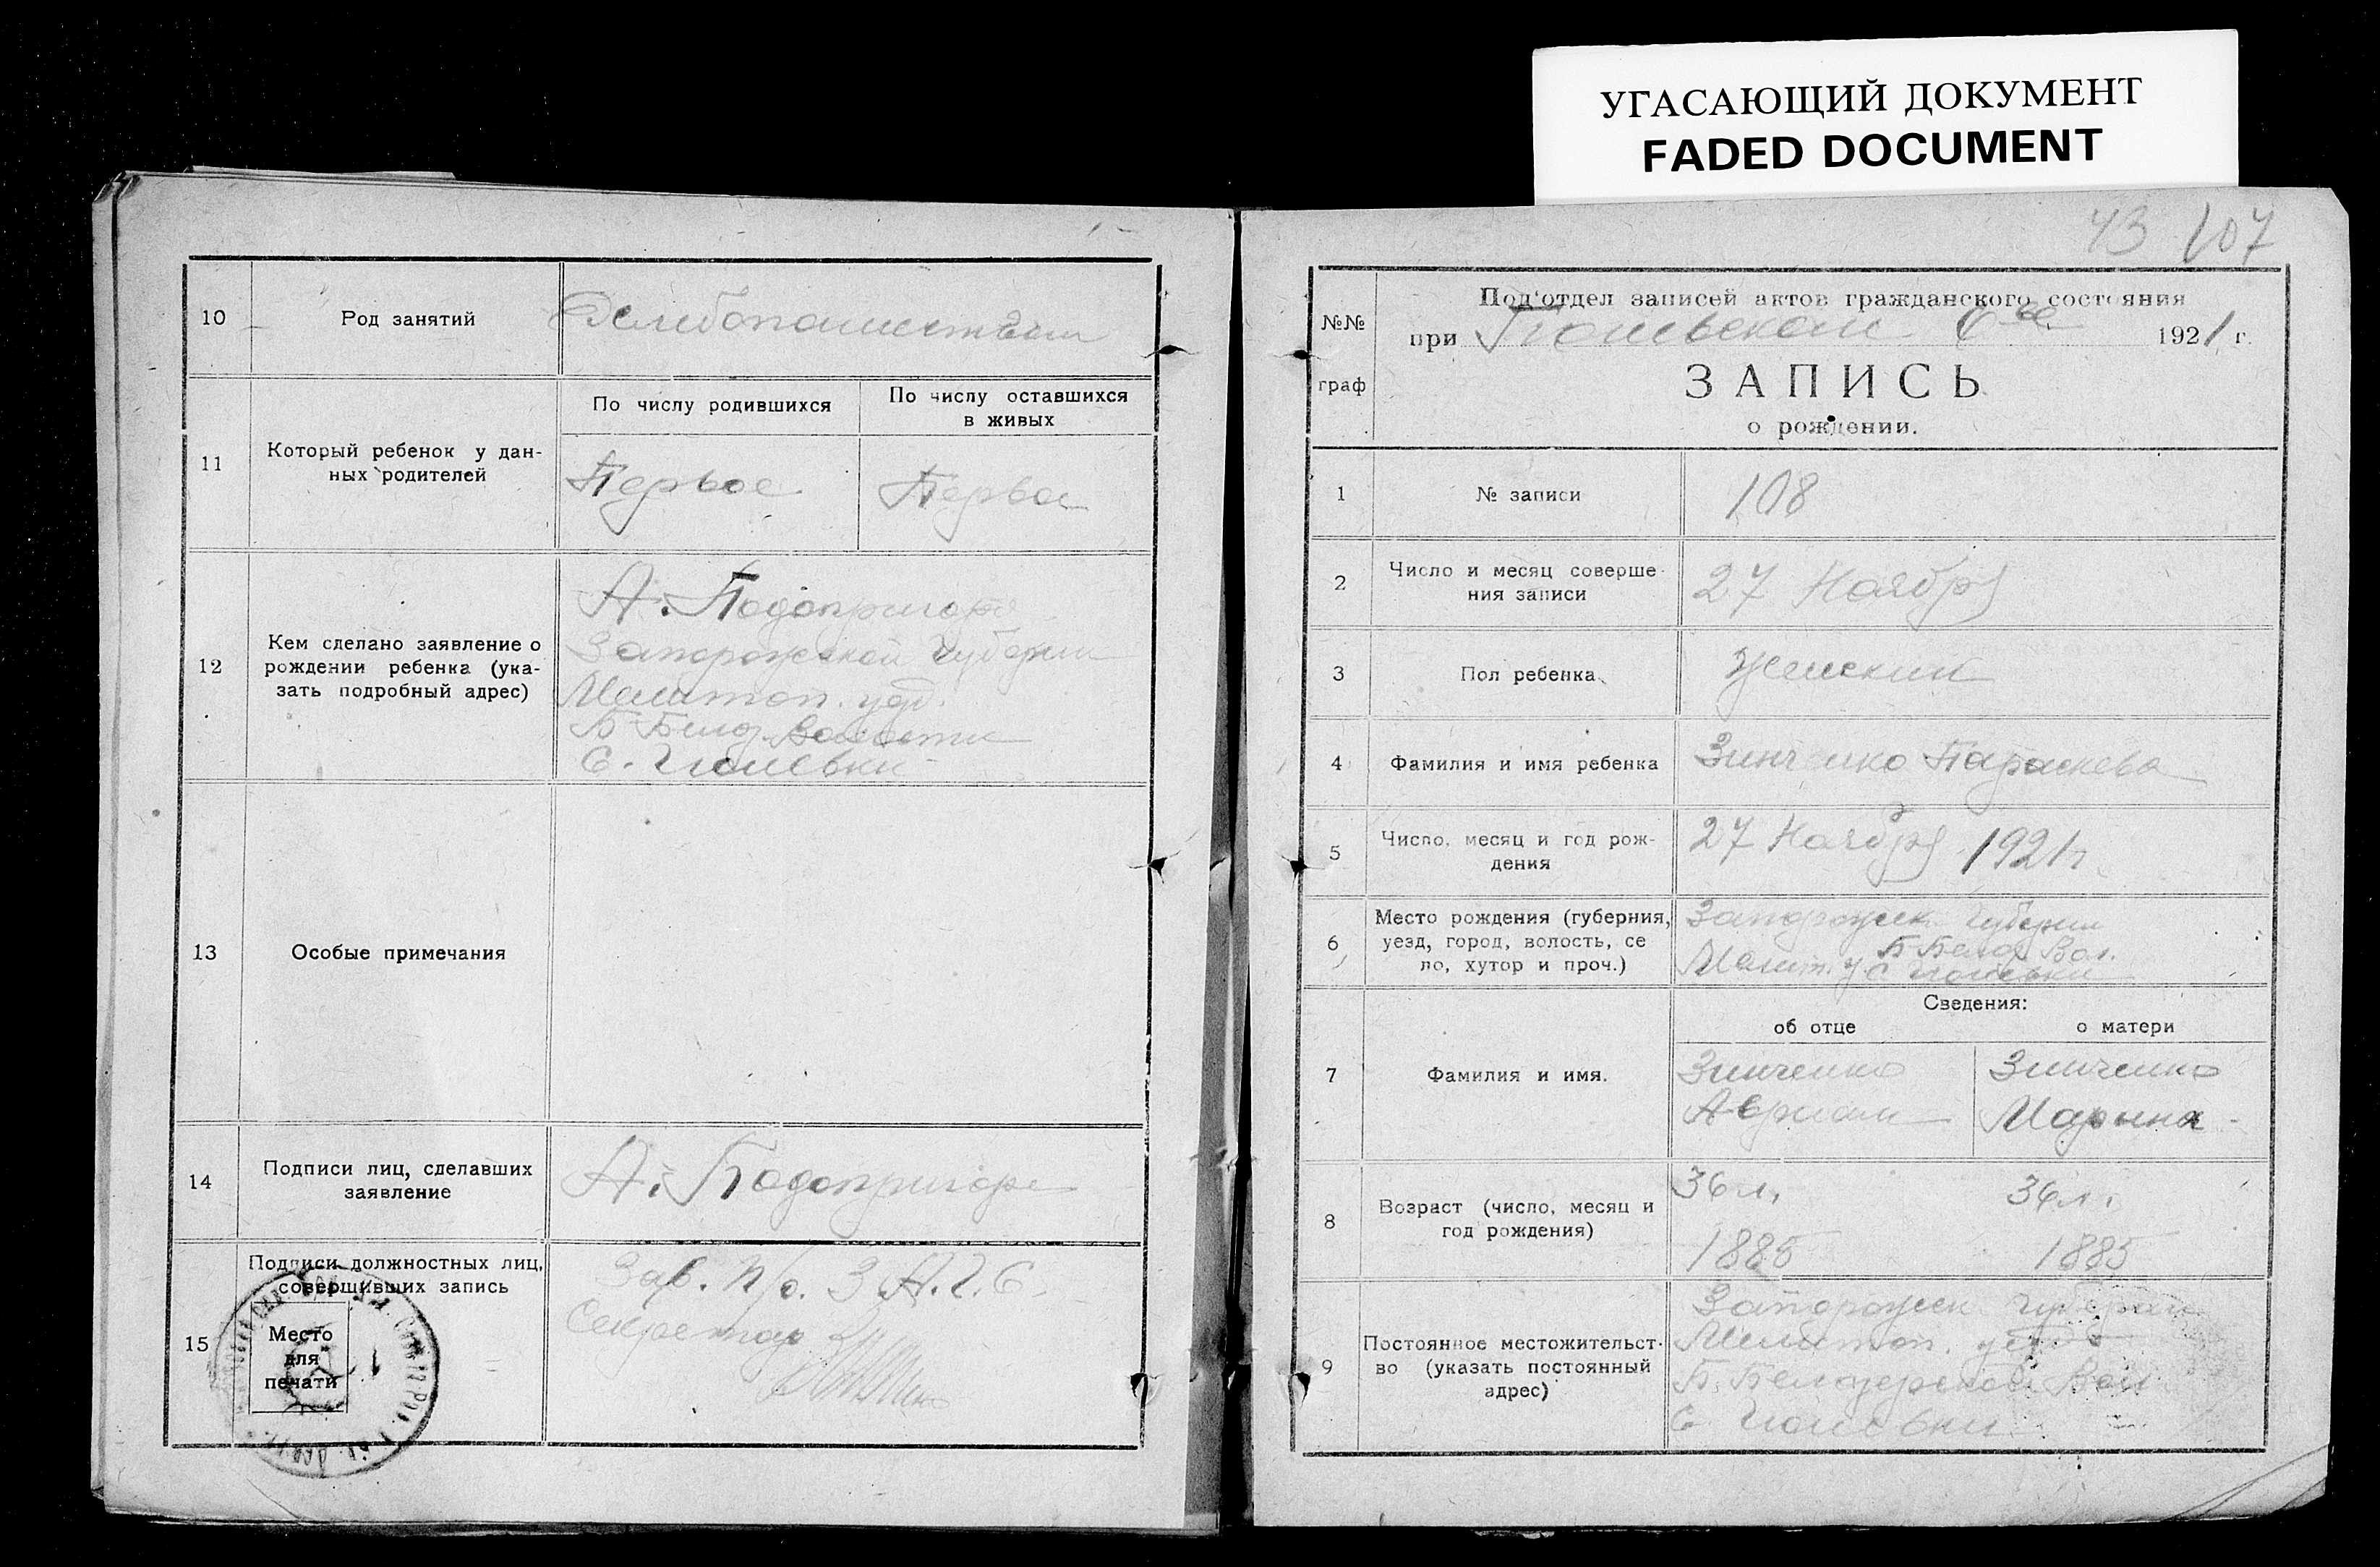 УГАСАЮЩИЙ ДОКУМЕНТ
FADED DOCUMENT
10
Род занятий
11
Который ребенок у дан-
ных родителей
По числу родившихся
Первое
По числу оставшихся
в живых
Первое
12
Кем сделано заявление о
рождении ребенка (ука-
зать подробный адрес)
А. Подопригора
Запорожской губернии
Мелитоп. уез.
Б Белоз. Волости
С.
13
Особые примечания
14
Подписи лиц, сделавших
заявление
А. Подопригора
15
Подписи должностных лиц,
совершивших запись
Место
для
печати
Зав. п/о. З А.Г.С
Секретар
43 107
№№
граф
Под'отдел записей актов гражданского состояния
при 1921 г.
ЗАПИСЬ
о рождении.
1
№ записи
108
2
Число и месяц соверше-
ния записи
27 Ноября
3
Пол ребенка
Женский
4
Фамилия и имя ребенка
Зинченко Параскева
5
Число, месяц и год рож-
дения
27 Ноября 1921 г.
6
Место рождения (губерния,
уезд, город, волость, се
ло, хутор и проч.)
Запорожск губернии
Б Белоз Вол.
Мелит. у С
7
Фамилия и имя.
Сведения:
об отце
о матери
Зинченко
Зинченко
Марына
8
Возраст (число, месяц и
год рождения)
36 л. 36 л.
1885 1885
9
Постоянное местожительст-
во (указать постоянный
адрес)
Запорожск губернии
Мелитоп. уез
Б. Белозерской Вол
С.